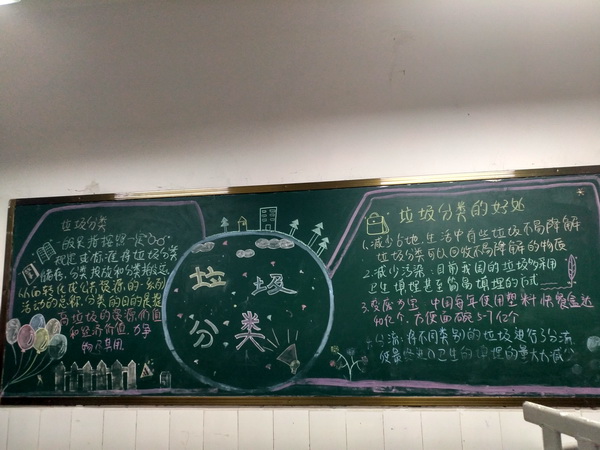 垃圾分类
一般是指按照一定
规定或标准将垃圾分类
储存、分类投放和分类搬运
从而转化成公共资源的一系列
活动的总称.分类的目的是提
高垃圾的资源价值
和经济价值,力争
物尽其用
垃圾
分类
垃圾分类的好处
1.减少占地.生活中有些垃圾不易降解
垃圾分类可以回收不易降解的物质
2.减少污染:目前我国的垃圾多采用
卫生填埋甚至简易填埋的方式
3.变废为宝 中国每年使用塑料快餐盒达
40亿个,方便面碗5-7亿个
分流:将不同类别的垃圾进行了分流
使最终进入卫生的填埋的量大力减少